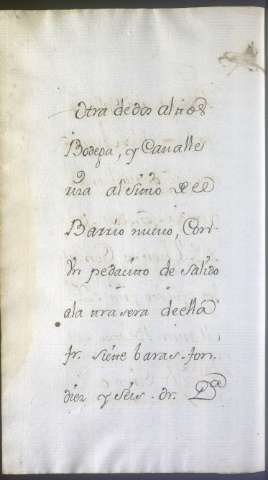 Otra de dos altos
Bodega, y Cavalle
riza al sitio de el
Barrio nuevo, Con
Vn pedacito de salido
ala trasera de ella
fr. siete baras. fon.
diez y seis. dr.